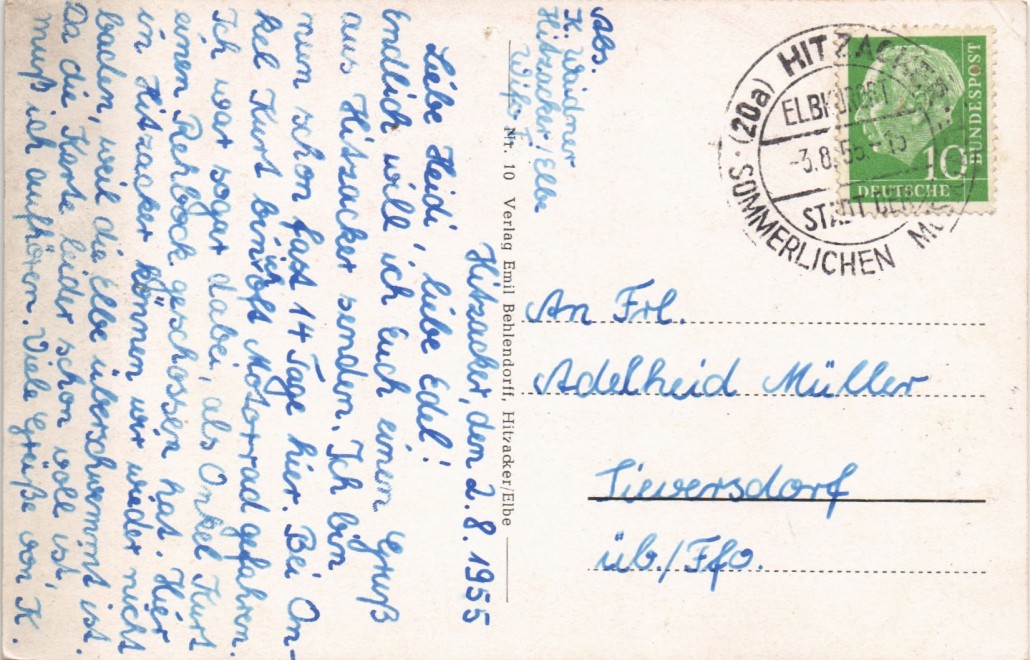 Hitzacker, den 2.8.1955
Liebe Heidi, liebe Edel!
Endlich will ich Euch einem Gruß
aus Hitzacker senden. Ich bin
nun schon fast 14 Tage hier. Bei On-
kel Kurt bin ich oft Motorrad gefahren.
Ich war sogar dabei, als Onkel Kurt
einen Rehbock geschossen hat. Hier
in Hitzacker können wir wieder nicht
baden, weil die Elbe überschwemmt ist.
Da die Karte leider schon voll ist,
muß ich aufhören. Viele Grüße von K.
Abs.
K. Weidner
Hitzacker/Elbe
Nr. 10 Verlag Emil Behlendorff, Hitzacker/Elbe
(20a) HITZACKER
ELBKURORT
-3.8.55.-
STADT DER
SOMMERLICHEN
10
DEUTSCHE
BUNDESPOST
An Frl.
Adelheid Müller
Sieversdorf
üb./Ffo.